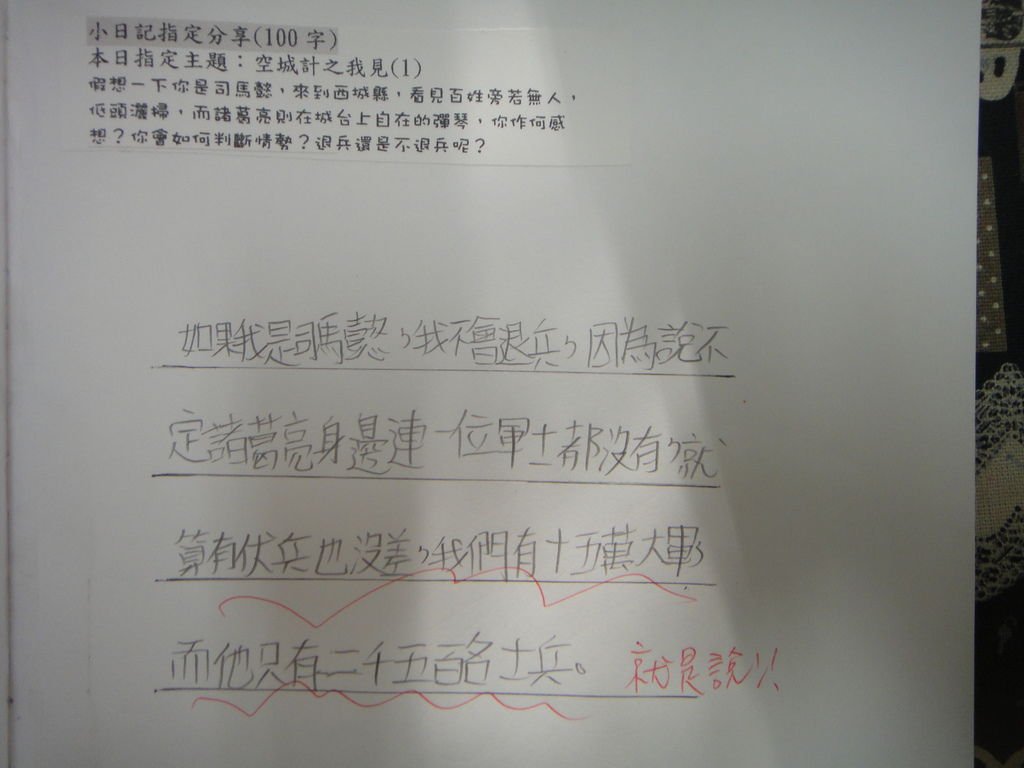 小日記指定分享(100 字)
本日指定主題：空城計之我見(1)
假想一下你是司馬懿，來到西城縣，看見百姓旁若無人，
低頭灑掃，而諸葛亮則在城台上自在的彈琴，你作何感
想？你會如何判斷情勢？退兵還是不退兵呢？
如果我是司馬懿，我不會退兵，因為說不
定諸葛亮身邊連一位軍士都沒有，就
算有伏兵也沒差，我們有十五萬大軍，
而他只有二千五百名士兵。 就是說！！